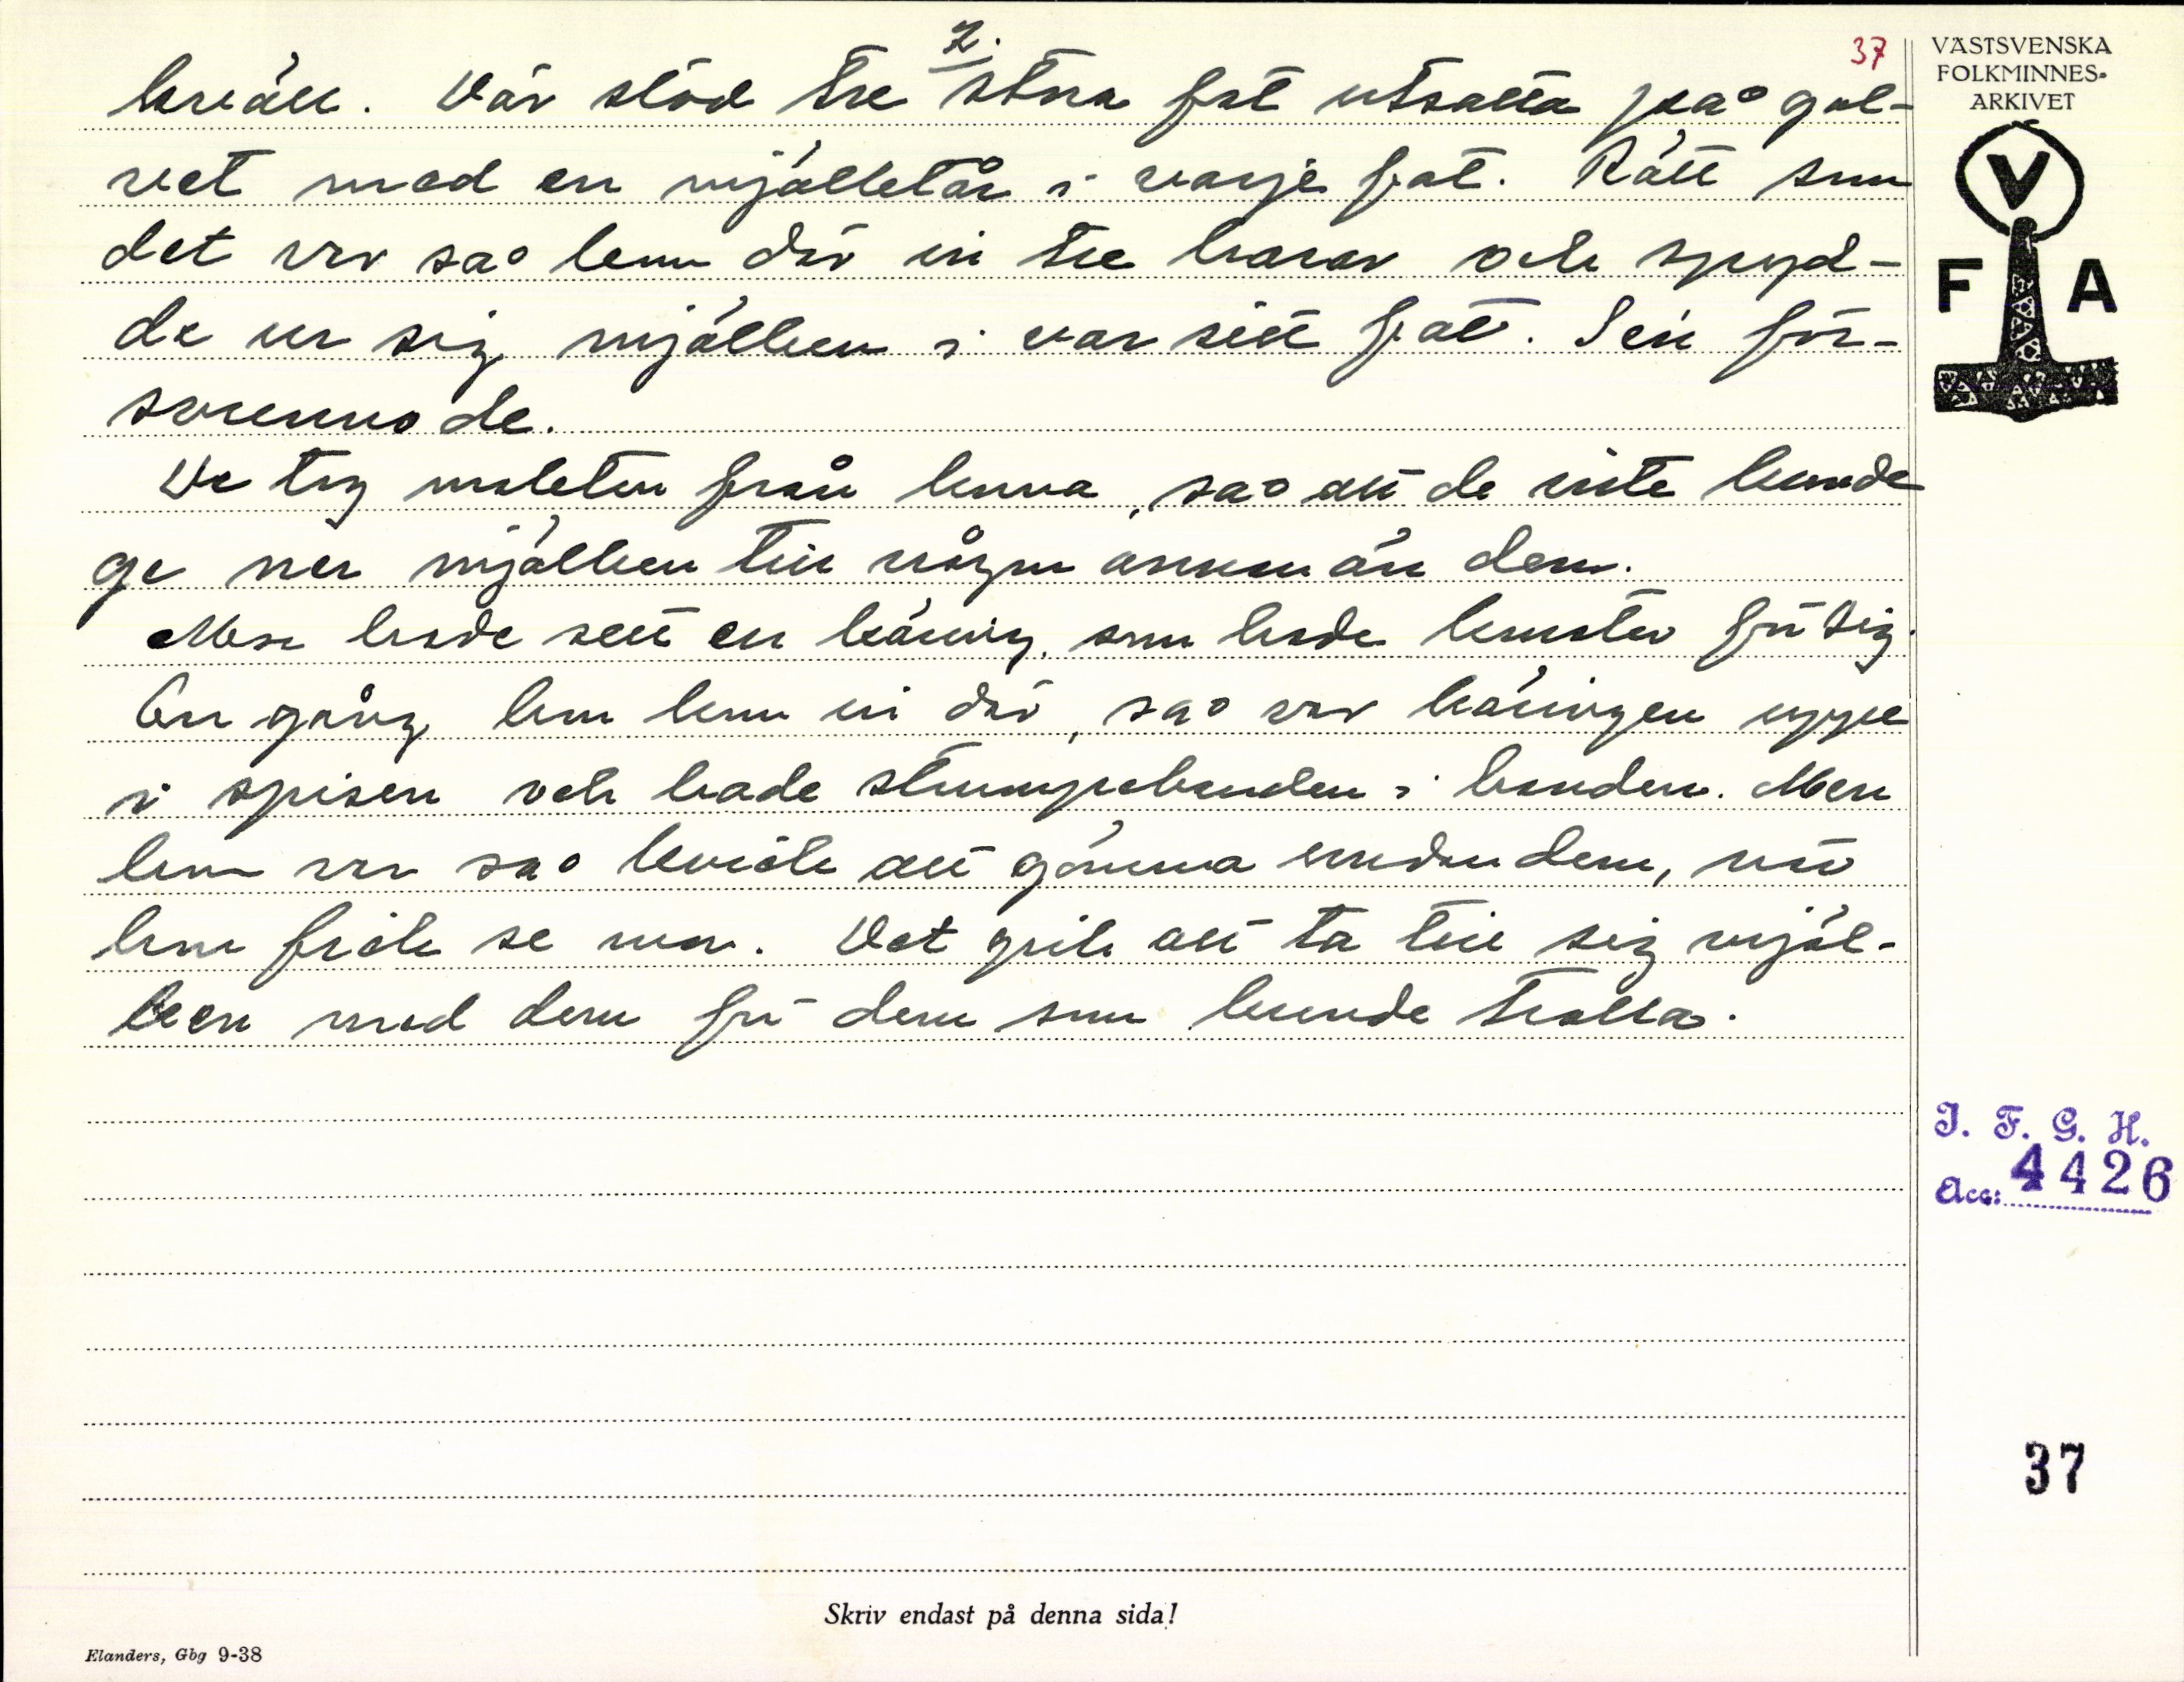 2.
37
kväll. Där stod tre stora fat utsatta på gol-
vet med en mjölketår i varje fat. Rätt som
det var så kom där in tre harar och spyd-
de ur sig mjölken i var sitt fat. Sen för-
svunno de.
De tog makten från korna, så att de inte kunde
ge ner mjölken till någon annan än dem.
Mor hade sett en käring, som hade konster för sig.
En gång hon kom in där, så var käringen uppe
i spisen och hade strumpebanden i handen. Men
hon var så kvick att gömma undan dem, när
hon fick se mor. Det gick att ta till sig mjöl-
ken med dem för dem som kunde trolla.
VÄSTSVENSKA
FOLKMINNES-
ARKIVET
V
F A
I. F. G. H.
Acc: 4426
37
Skriv endast på denna sida!
Elanders, Gbg 9-38